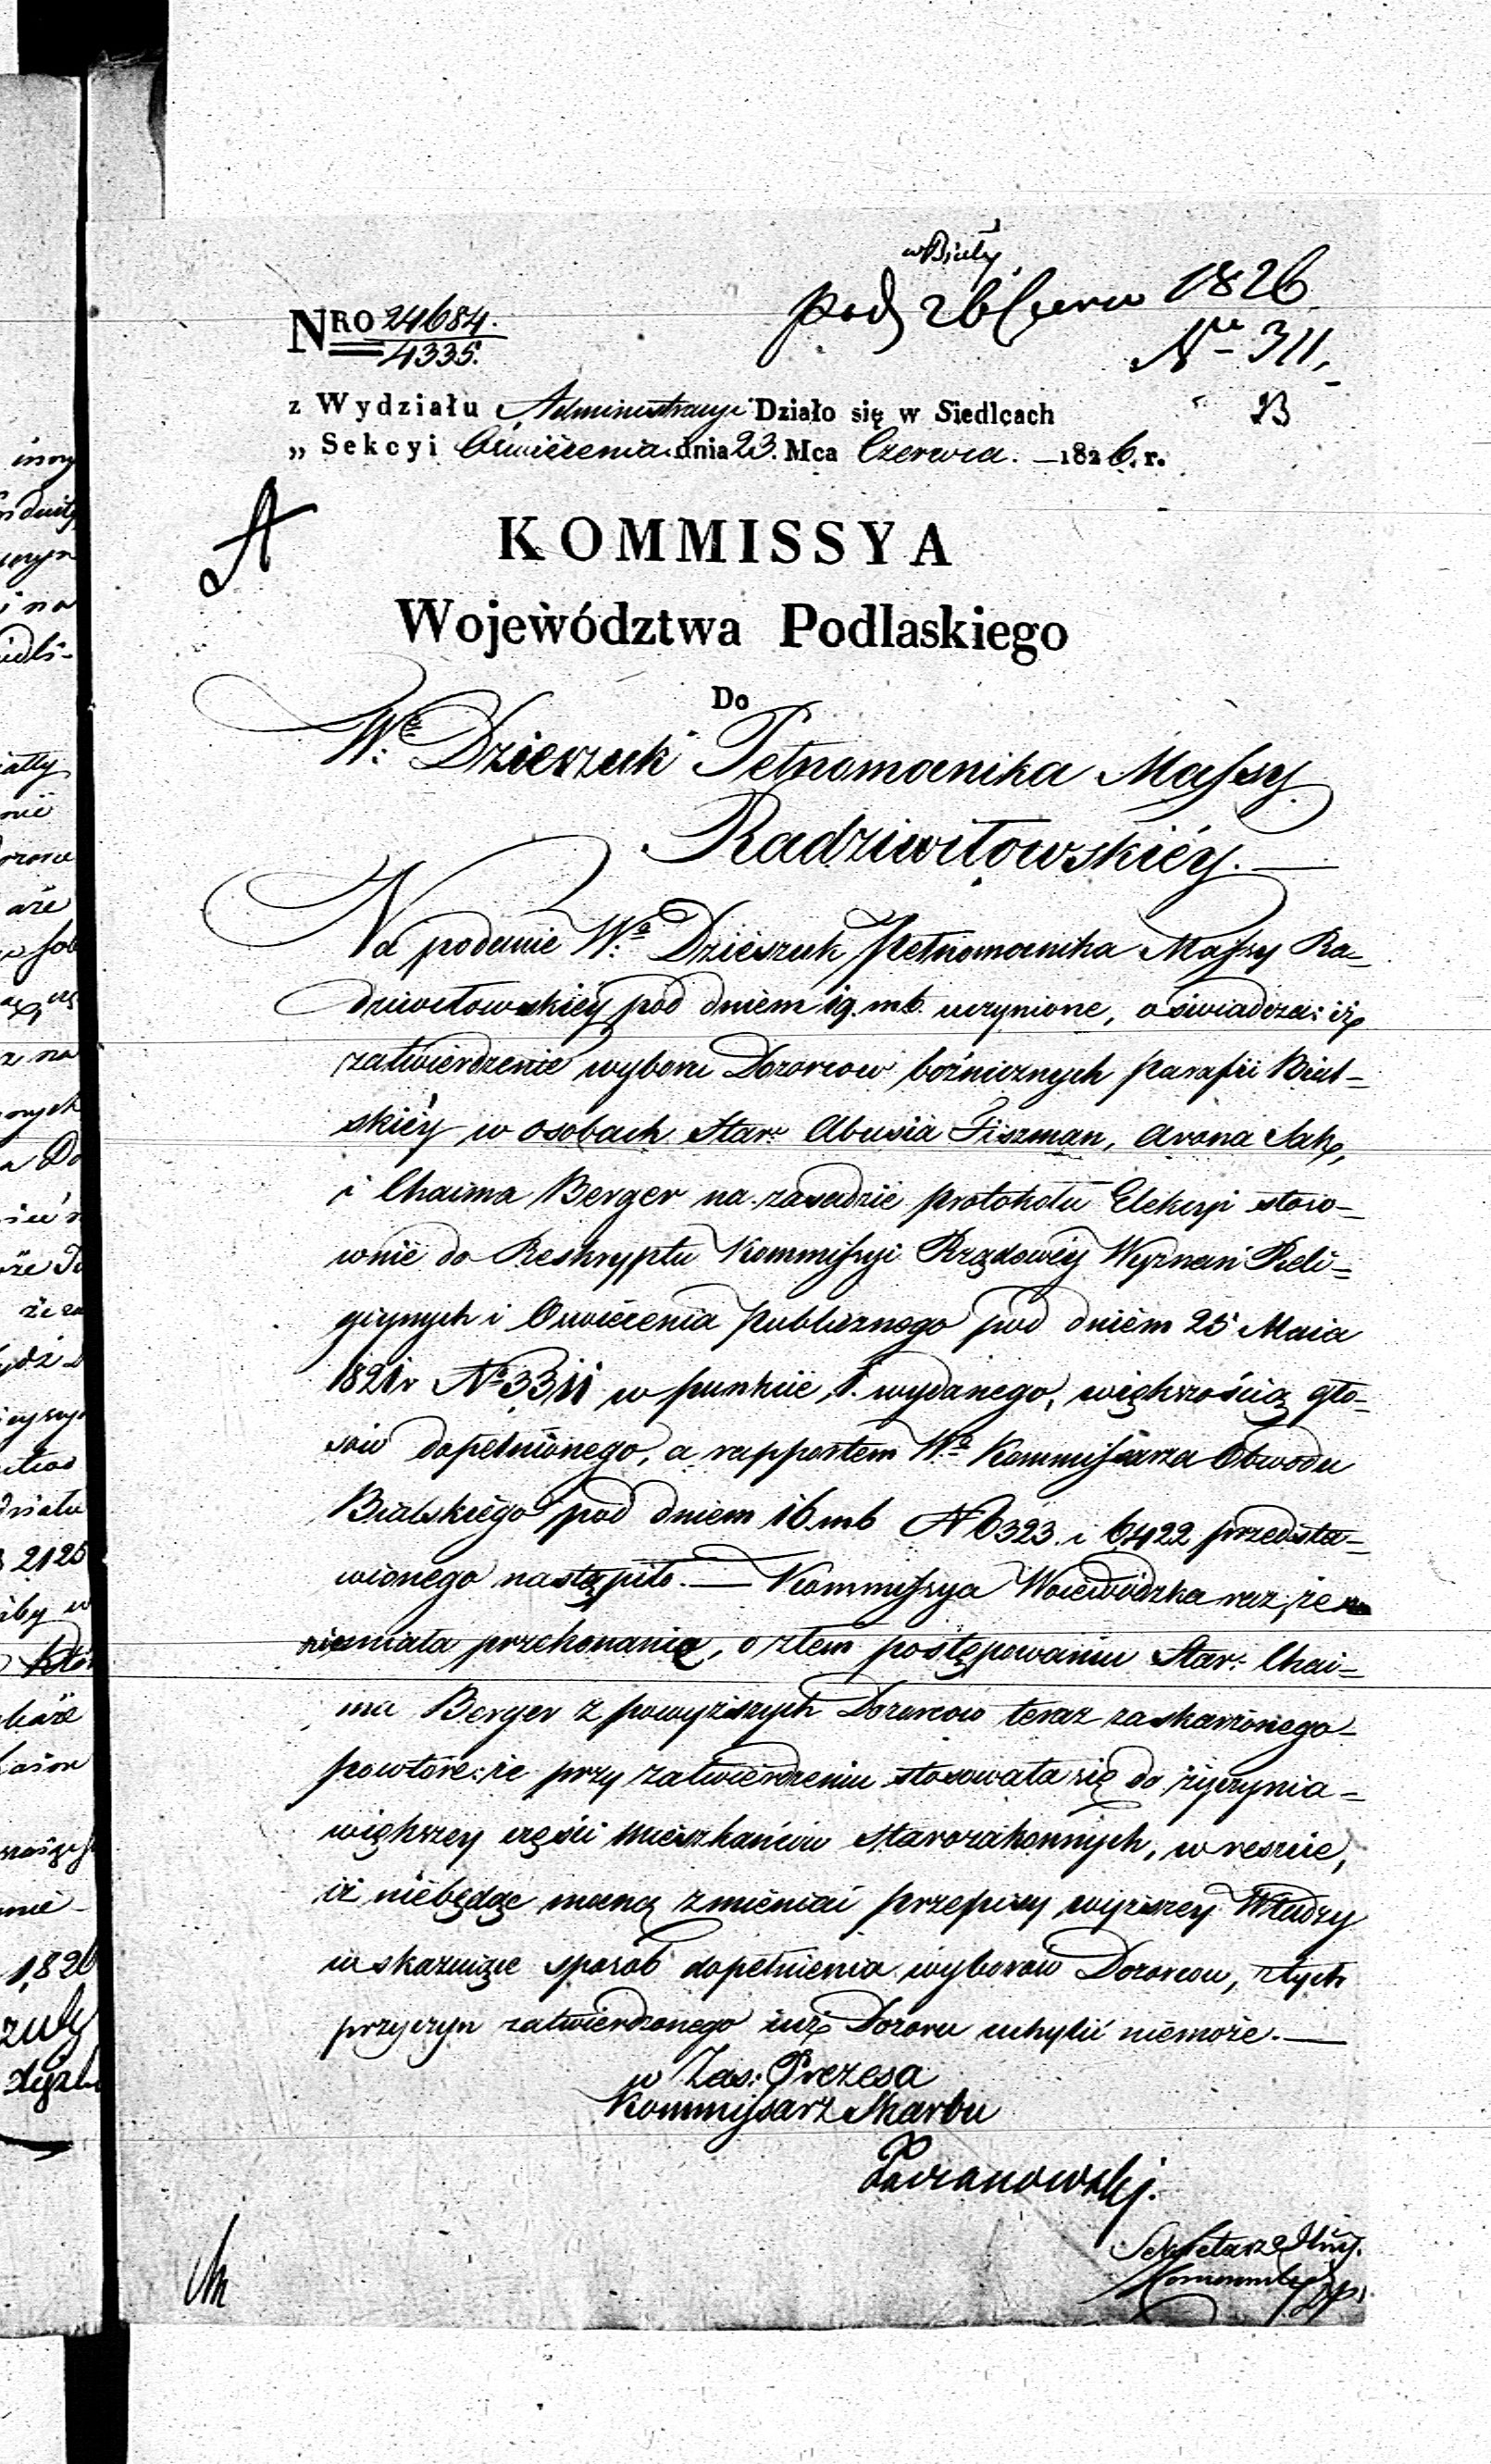 w Biały
pod 26 Czerw 1826
N<sup>ro</sup> 311.
NRO 24684.
4335.
z Wydziału Administracyi Działo się w Siedlcach
B
„ Sekcyi Oświecenia dnia 23. Mca Czerwca. —1826. r.
A
KOMMISSYA
Województwa Podlaskiego
Do
W. Dzierzuk Pełnomocnika Massy
Radziwiłowskiéy. —
Na podanie W. Dzieszuk Pełnomocnika Massy Ra-
dziwiłowskiéy pod dniem 19. mb. uczynione, oświadcza: iż
zatwierdzenie wyboru Dozorcow bóżnicznych parafii Bial-
skiéy w osobach Star: Abusia Fiszman, Arona Sak,
i Chaima Berger na zasadzie protokołu Elekcyi stoso-
wnie do Reskryptu Kommissyi Rządowéy Wyznań Reli-
giynych i Oświecenia Publicznego pod dniem 25 Maia
1821 r N 3311 w punkcie 1. wydanego, większością gło-
sów dopełnionego, a rapportem W. Kommissarza Obwodu
Bialskiego pod dniem 16. mb N 6323. i 6422 przedsta-
wionego nastąpiło. — Kommissya Woiewódzka raz, że
niemiała przekonania, o złem postępowaniu Star: Chai-
ma Berger z powyższych Dozorcow teraz zaskarżonego
powtóre: że przy zatwierdzeniu stosowała się do życzynia
większey części Mieszkańców Starozakonnych, w reszcie,
iż niebędąc mocną zmieniać przepisy wyższey Władzy
wskazuiące sposob dopełnienia wyborow Dozorcow, z tych
przyczyn zatwierdzonego iuż Dozoru uchylić niemoże. —
w Zas: Prezesa
Kommissarz Skarbu
Sekretarz